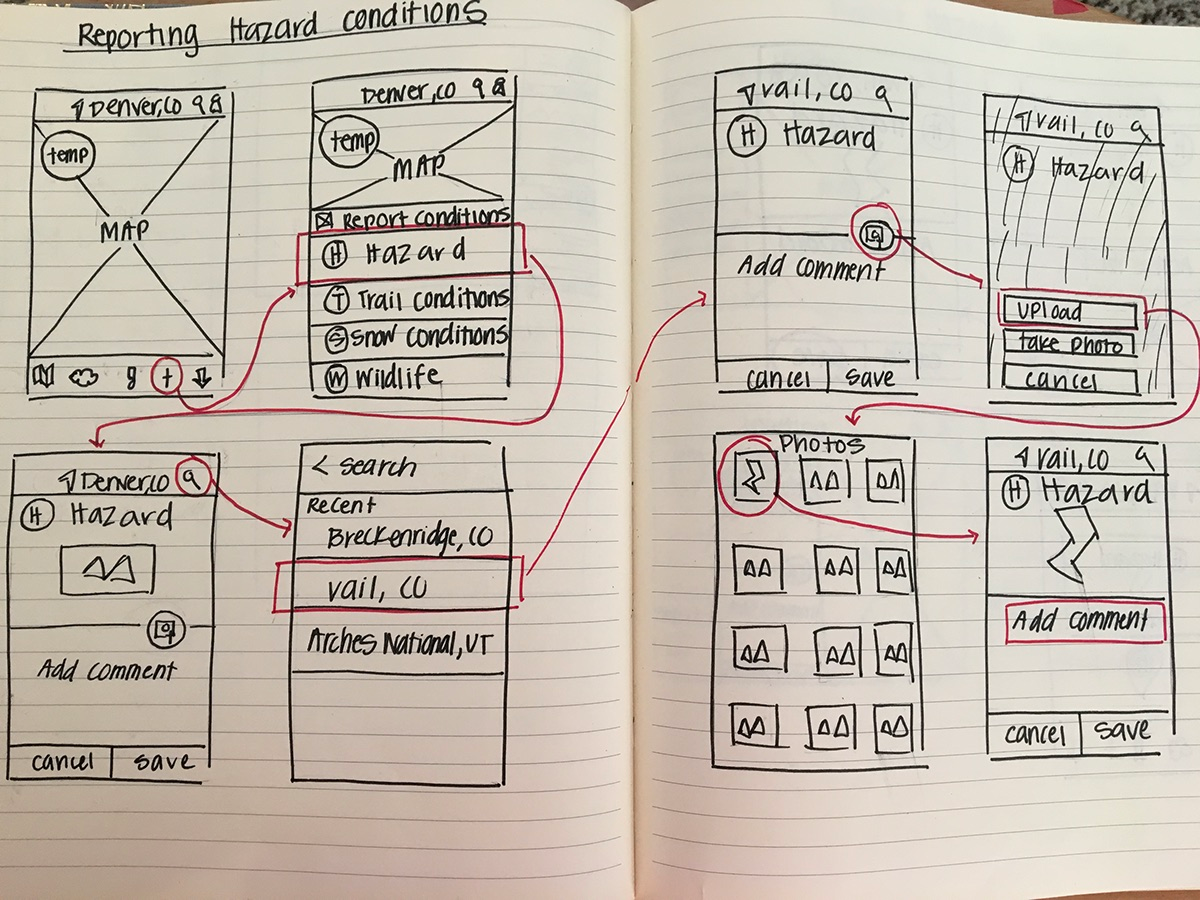 Reporting Hazard conditions
Denver,CO
temp
MAP
Denver,CO
temp
MAP
Report conditions
H Hazard
T Trail conditions
S Snow conditions
W Wildlife
Denver,CO
H Hazard
Add comment
cancel save
< search
Recent
Breckenridge, CO
vail, CO
Arches National, UT
vail, CO
H Hazard
Add comment
cancel save
vail, CO
H Hazard
upload
take photo
cancel
Photos
vail, CO
H Hazard
Add comment
cancel save